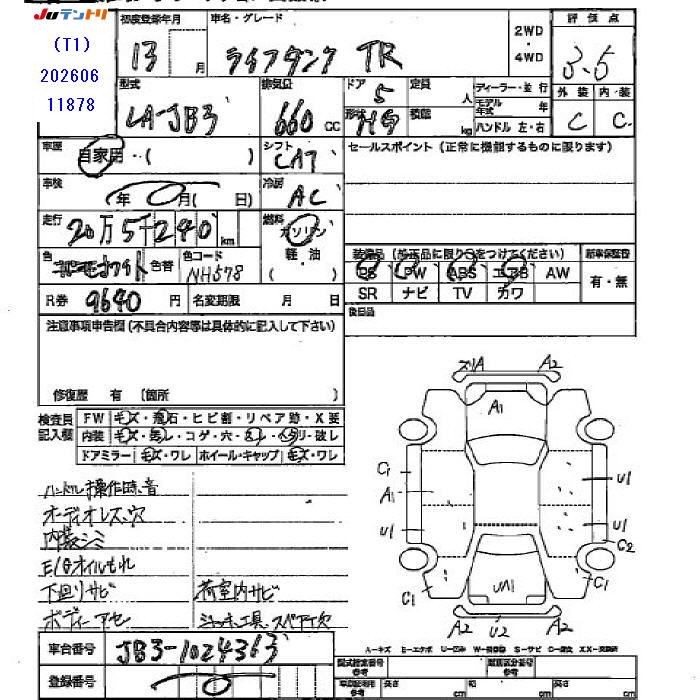 JUテントリ
(T1)
202606
11878
初度登録年月 車名・グレード 2WD・4WD 評価点
13 月 ライフダンク TR 3.5
型式 排気量 ドア 定員 ディーラー・並行 外装 内装
LA-JB3 660 CC 5 人 モデル年式 年 C C
形状 積載 kg ハンドル 左・右
車歴 自家用・・( シフト CAT セールスポイント(正常に機能するものに限ります)
車検 年 0 月( 日) 冷房 AC
走行 20万5千240 km 燃料 ガソリン
軽・油
色 色替 色コード NH578 装備品(純正品に限り○をつけてください) 新車保証書
PS PW ABS エアB AW 有・無
SR ナビ TV カワ
R券 9640 円 名変期限 月 日 後日品
注意事項申告欄(不具合内容等は具体的に記入して下さい)
修復歴 有 (箇所 )
検査員 FW キズ・飛石・ヒビ割・リペア跡・X要
記入欄 内装 キズ・・コゲ・穴・・・破レ
ドアミラー キズ・ワレ ホイール・キャップ キズ・ワレ
ハンドル操作時音
オーディオレス、穴
内装シミ
E/Gオイルもれ
下回りサビ 荷室内サビ
ボディーアセ ジャッキ、工具、スペア欠
A2
A1
C1 U1
A1
U1 U1
C2
C1 UA1 C1
A2 U2 A2
車台番号 JB3-1024363
登録番号 0
A-キズ E-エクボ U-凹み W-補修跡 S-サビ C-腐食 XX-交換済
型式指定番号 参考 類別区分番号 参考
参考 長さ cm 幅 cm 高さ cm